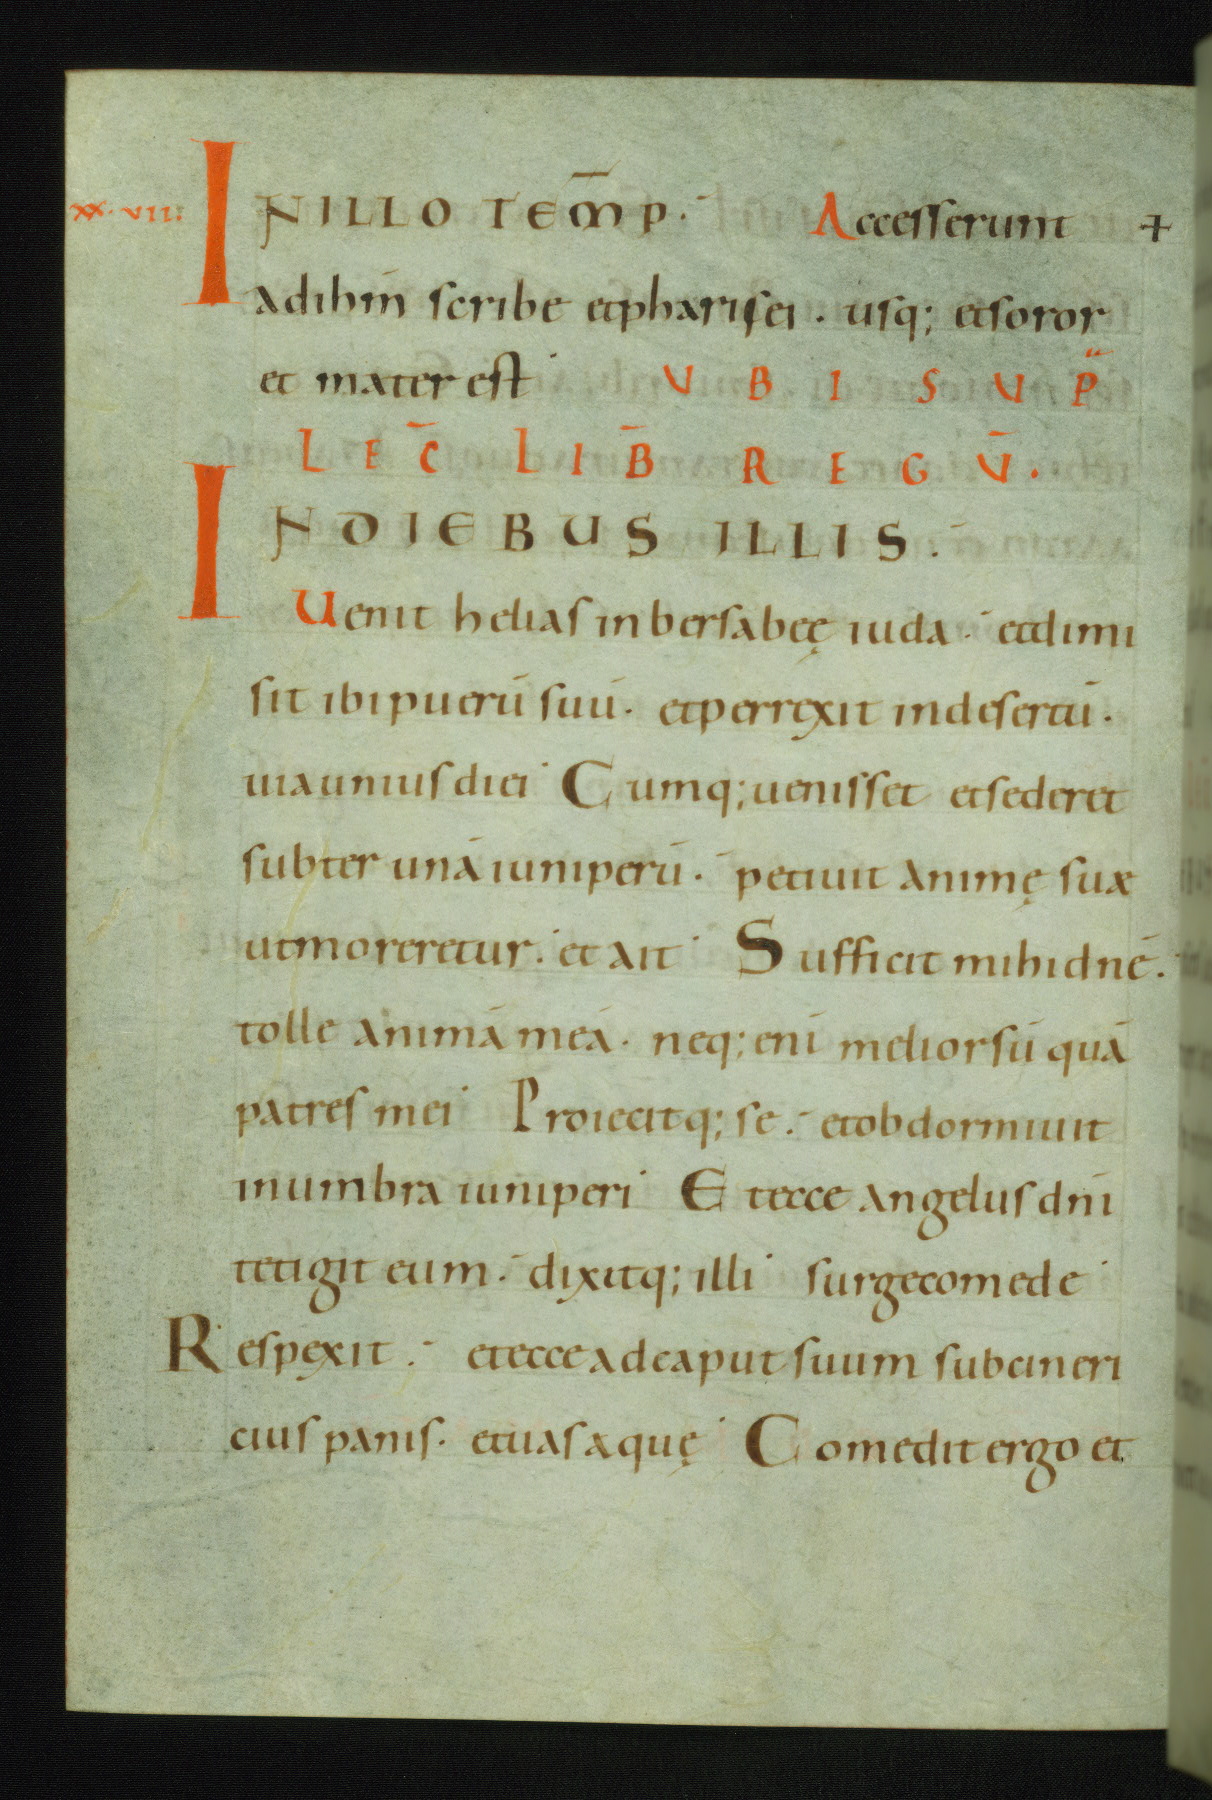 xx·vii: IN ILLO TEM̅P. Accesserunt +
ad ihm̄ scribe et pharisei . usq; et soror
et mater est UBI SUP̄
LEC̄ LIB̄ REGŪ.
IN DIEBUS ILLIS.
Uenit helias in bersabeę iuda . et dimi
sit ibi puerū suū. et perrexit in desertū.
uia unius diei Cumq; uenisset et sederet
subter unā iuniperū. petiuit animę suæ
ut moreretur. et ait Sufficit mihi dnē.
tolle animā meā. neq; enī melior sū quā
patres mei Proiecitq; se. et obdormiuit
in umbra iuniperi Et ecce angelus dnī
tetigit eum. dixitq; illi surge comede
Respexit . et ecce ad caput suum subcineri
cius panis. et uas aquę Comedit ergo et